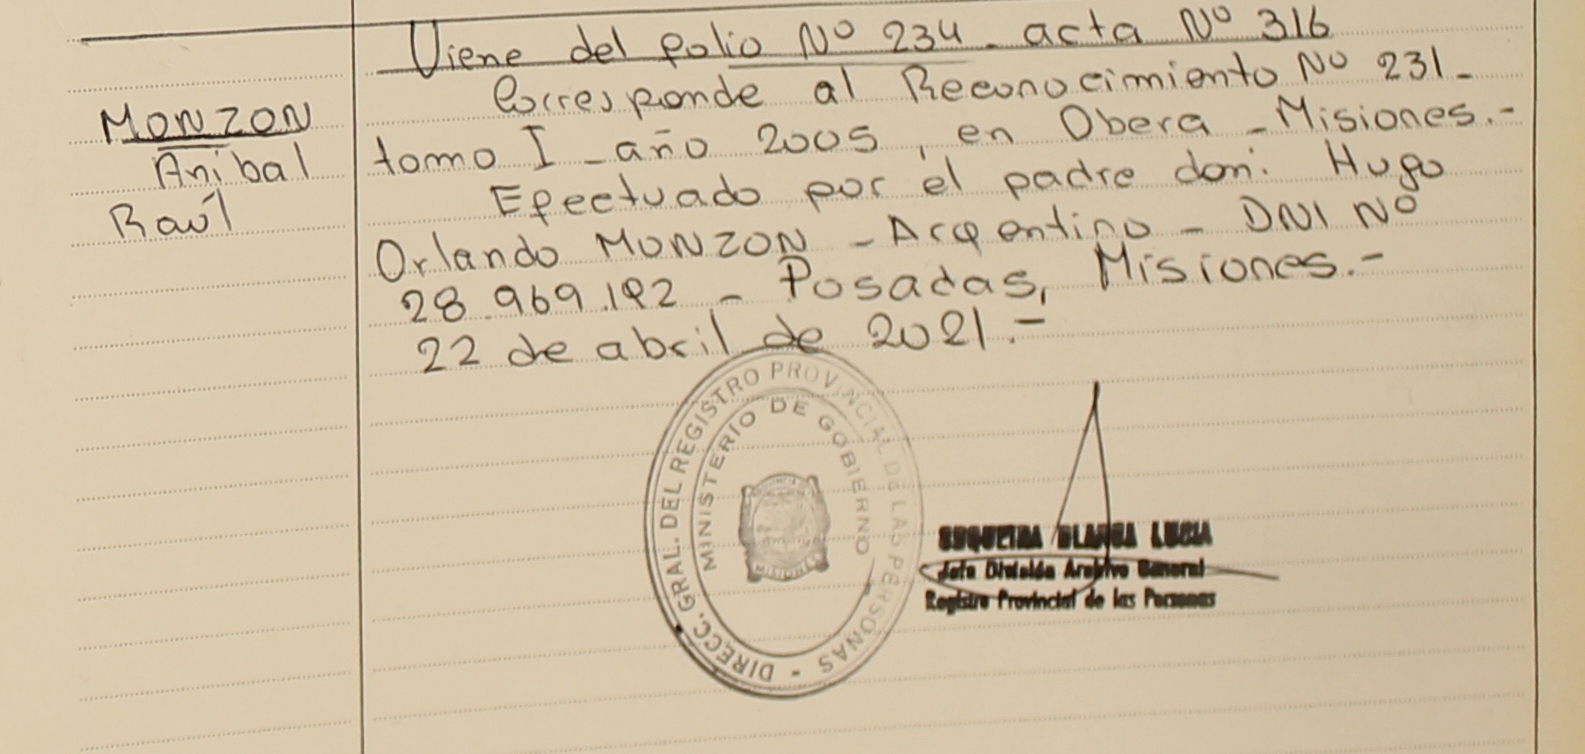 Viene del folio Nº 234 - acta Nº 316
MONZON
Aníbal
Raúl
Corresponde al Reconocimiento Nº 231 -
tomo I - año 2005, en Obera - Misiones.-
Efectuado por el padre don: Hugo
Orlando MONZON - Argentino - DNI Nº
28.969.192 - Posadas, Misiones.-
22 de abril de 2021.-
DIRECC. GRAL. DEL REGISTRO PROVINCIAL DE LAS PERSONAS -
MINISTERIO DE GOBIERNO
MISIONES
SEQUEIRA BLANCA LUCIA
Jefa División Archivo General
Registro Provincial de las Personas